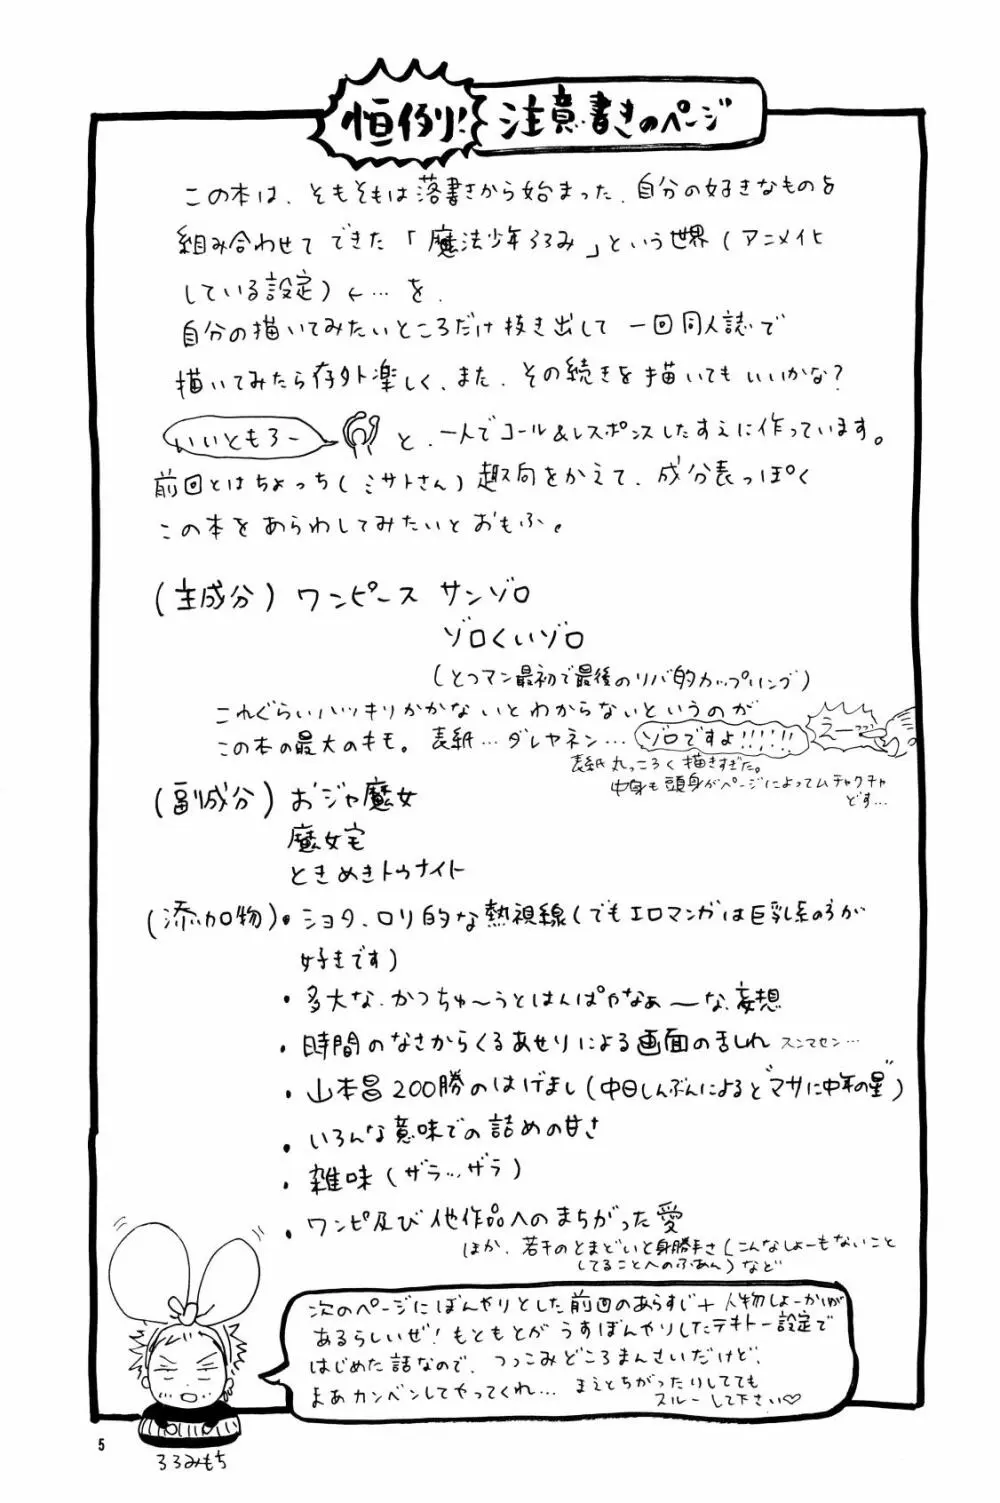 恒例!
注意書きのページ
この本は、そもそもは落書きから始まった、自分の好きなものを
組み合わせてできた「魔法少年ろろみ」という世界(アニメ化
している設定)←…を、
自分の描いてみたいところだけ抜き出して一回同人誌で
描いてみたら存外楽しく、また、その続きを描いてもいいかな?
いいともろー
と、一人でコール&レスポンスしたすえに作っています。
前回とはちょっち(ミサトさん)趣向をかえて、成分表っぽく
この本をあらわしてみたいとおもふ。
(主成分)ワンピース サンゾロ
ゾロくいゾロ
(とつマン最初で最後のリバ的カップリング)
これぐらいハッキリかかないとわからないというのが
この本の最大のキモ。表紙…ダレヤネン…
ゾロですよ!!!!!!
えーっっ
表紙丸っころく描きすぎた。
中身も頭身がページによってムチャクチャ
どす…
(副成分)おジャ魔女
魔女宅
ときめきトゥナイト
(添加物)・ショタ、ロリ的な熱視線(でもエロマンガは巨乳系の方が
好きです)
・多大な、かつちゅ〜うとはんぱやなぁ〜な妄想
・時間のなさからくるあせりによる画面の乱れ スンマセン…
・山本昌200勝のはげまし(中日しんぶんによると"マサに中年の星")
・いろんな意味での詰めの甘さ
・雑味(ザラ…ザラ)
・ワンピ及び他作品へのまちがった愛
ほか、若干のとまどいと身勝手さ(こんなしょーもないこと
してることへのふあん)など
次のページにぼんやりとした前回のあらすじ+人物しょーかいが
あるらしいぜ!もともとがうすぼんやりしたテキトー設定で
はじめた話なので、つっこみどころまんさいだけど、
まあカンベンしてやってくれ…まえとちがったりしてても
スルーして下さい♡
ろろみもち
5